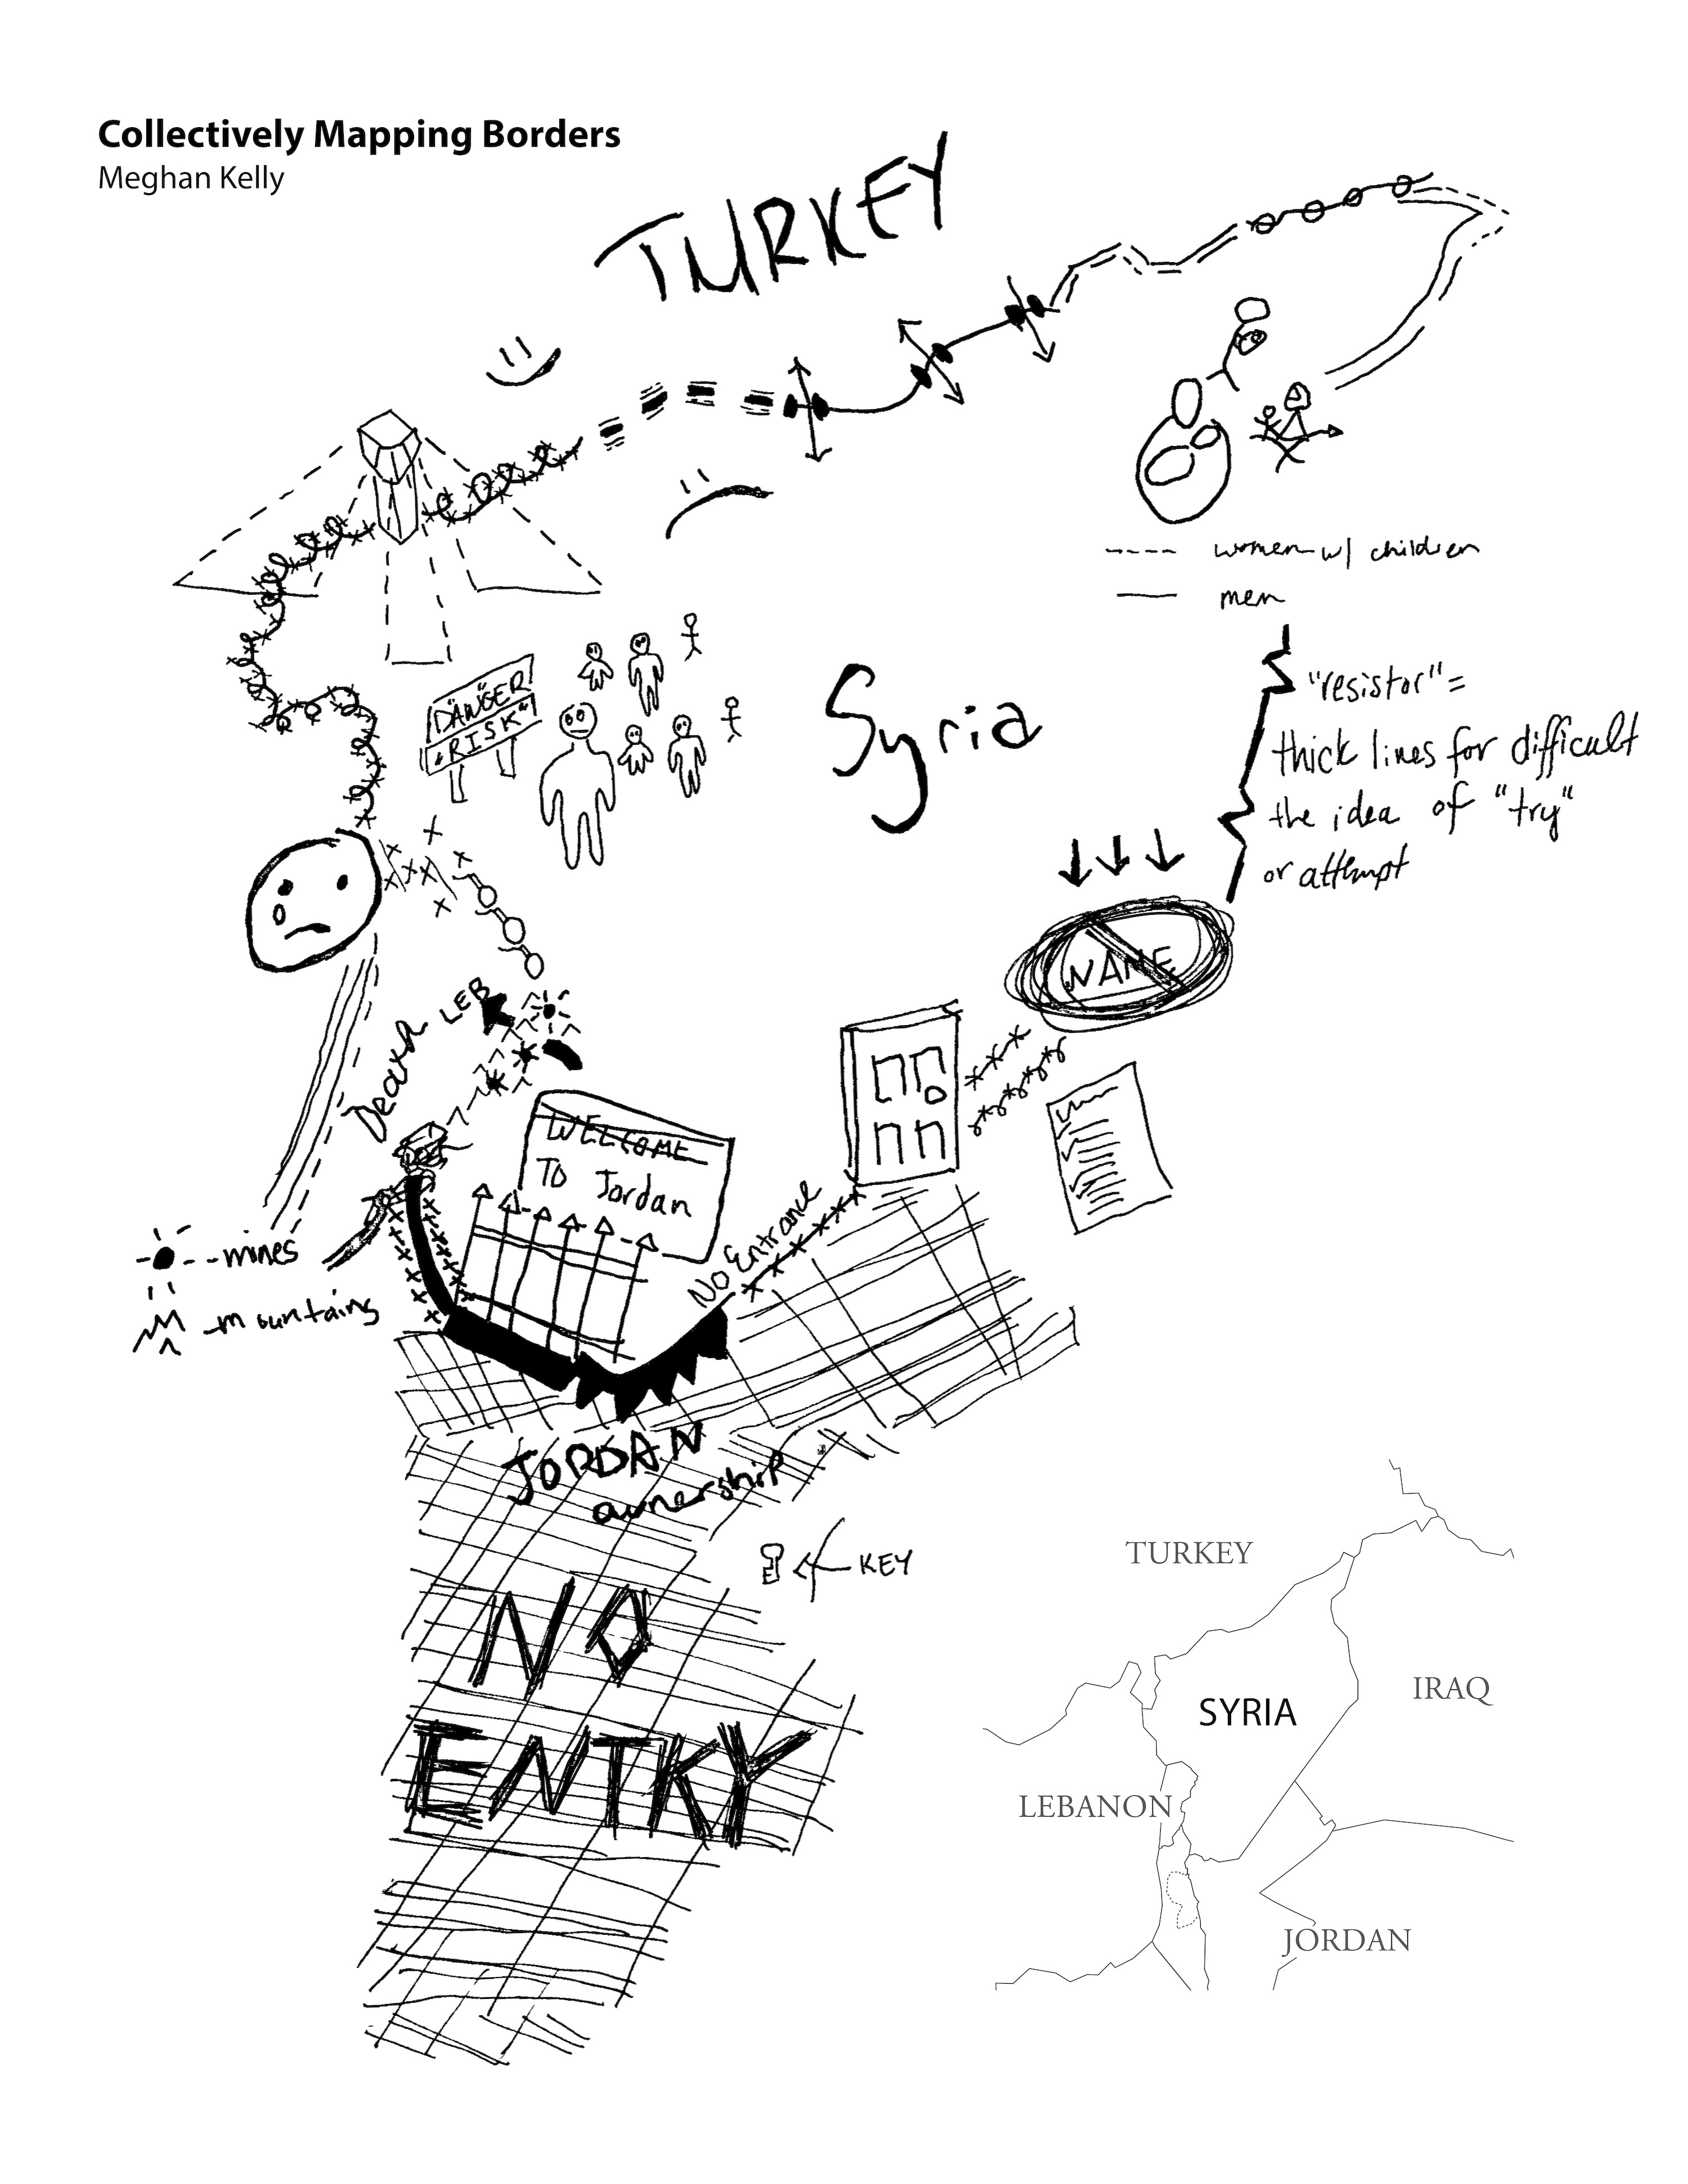 Collectively Mapping Borders
Meghan Kelly
TURKEY
---- women w/ children
— men
"DANGER
"RISK"
Syria
"resistor"=
thick lines for difficult
the idea of "try"
or attempt
NAME
LEB
Death
WELCOME
TO Jordan
No Entrance
- mines
- mountains
JORDAN
ownership
KEY
NO
ENTRY
TURKEY
SYRIA
IRAQ
LEBANON
JORDAN